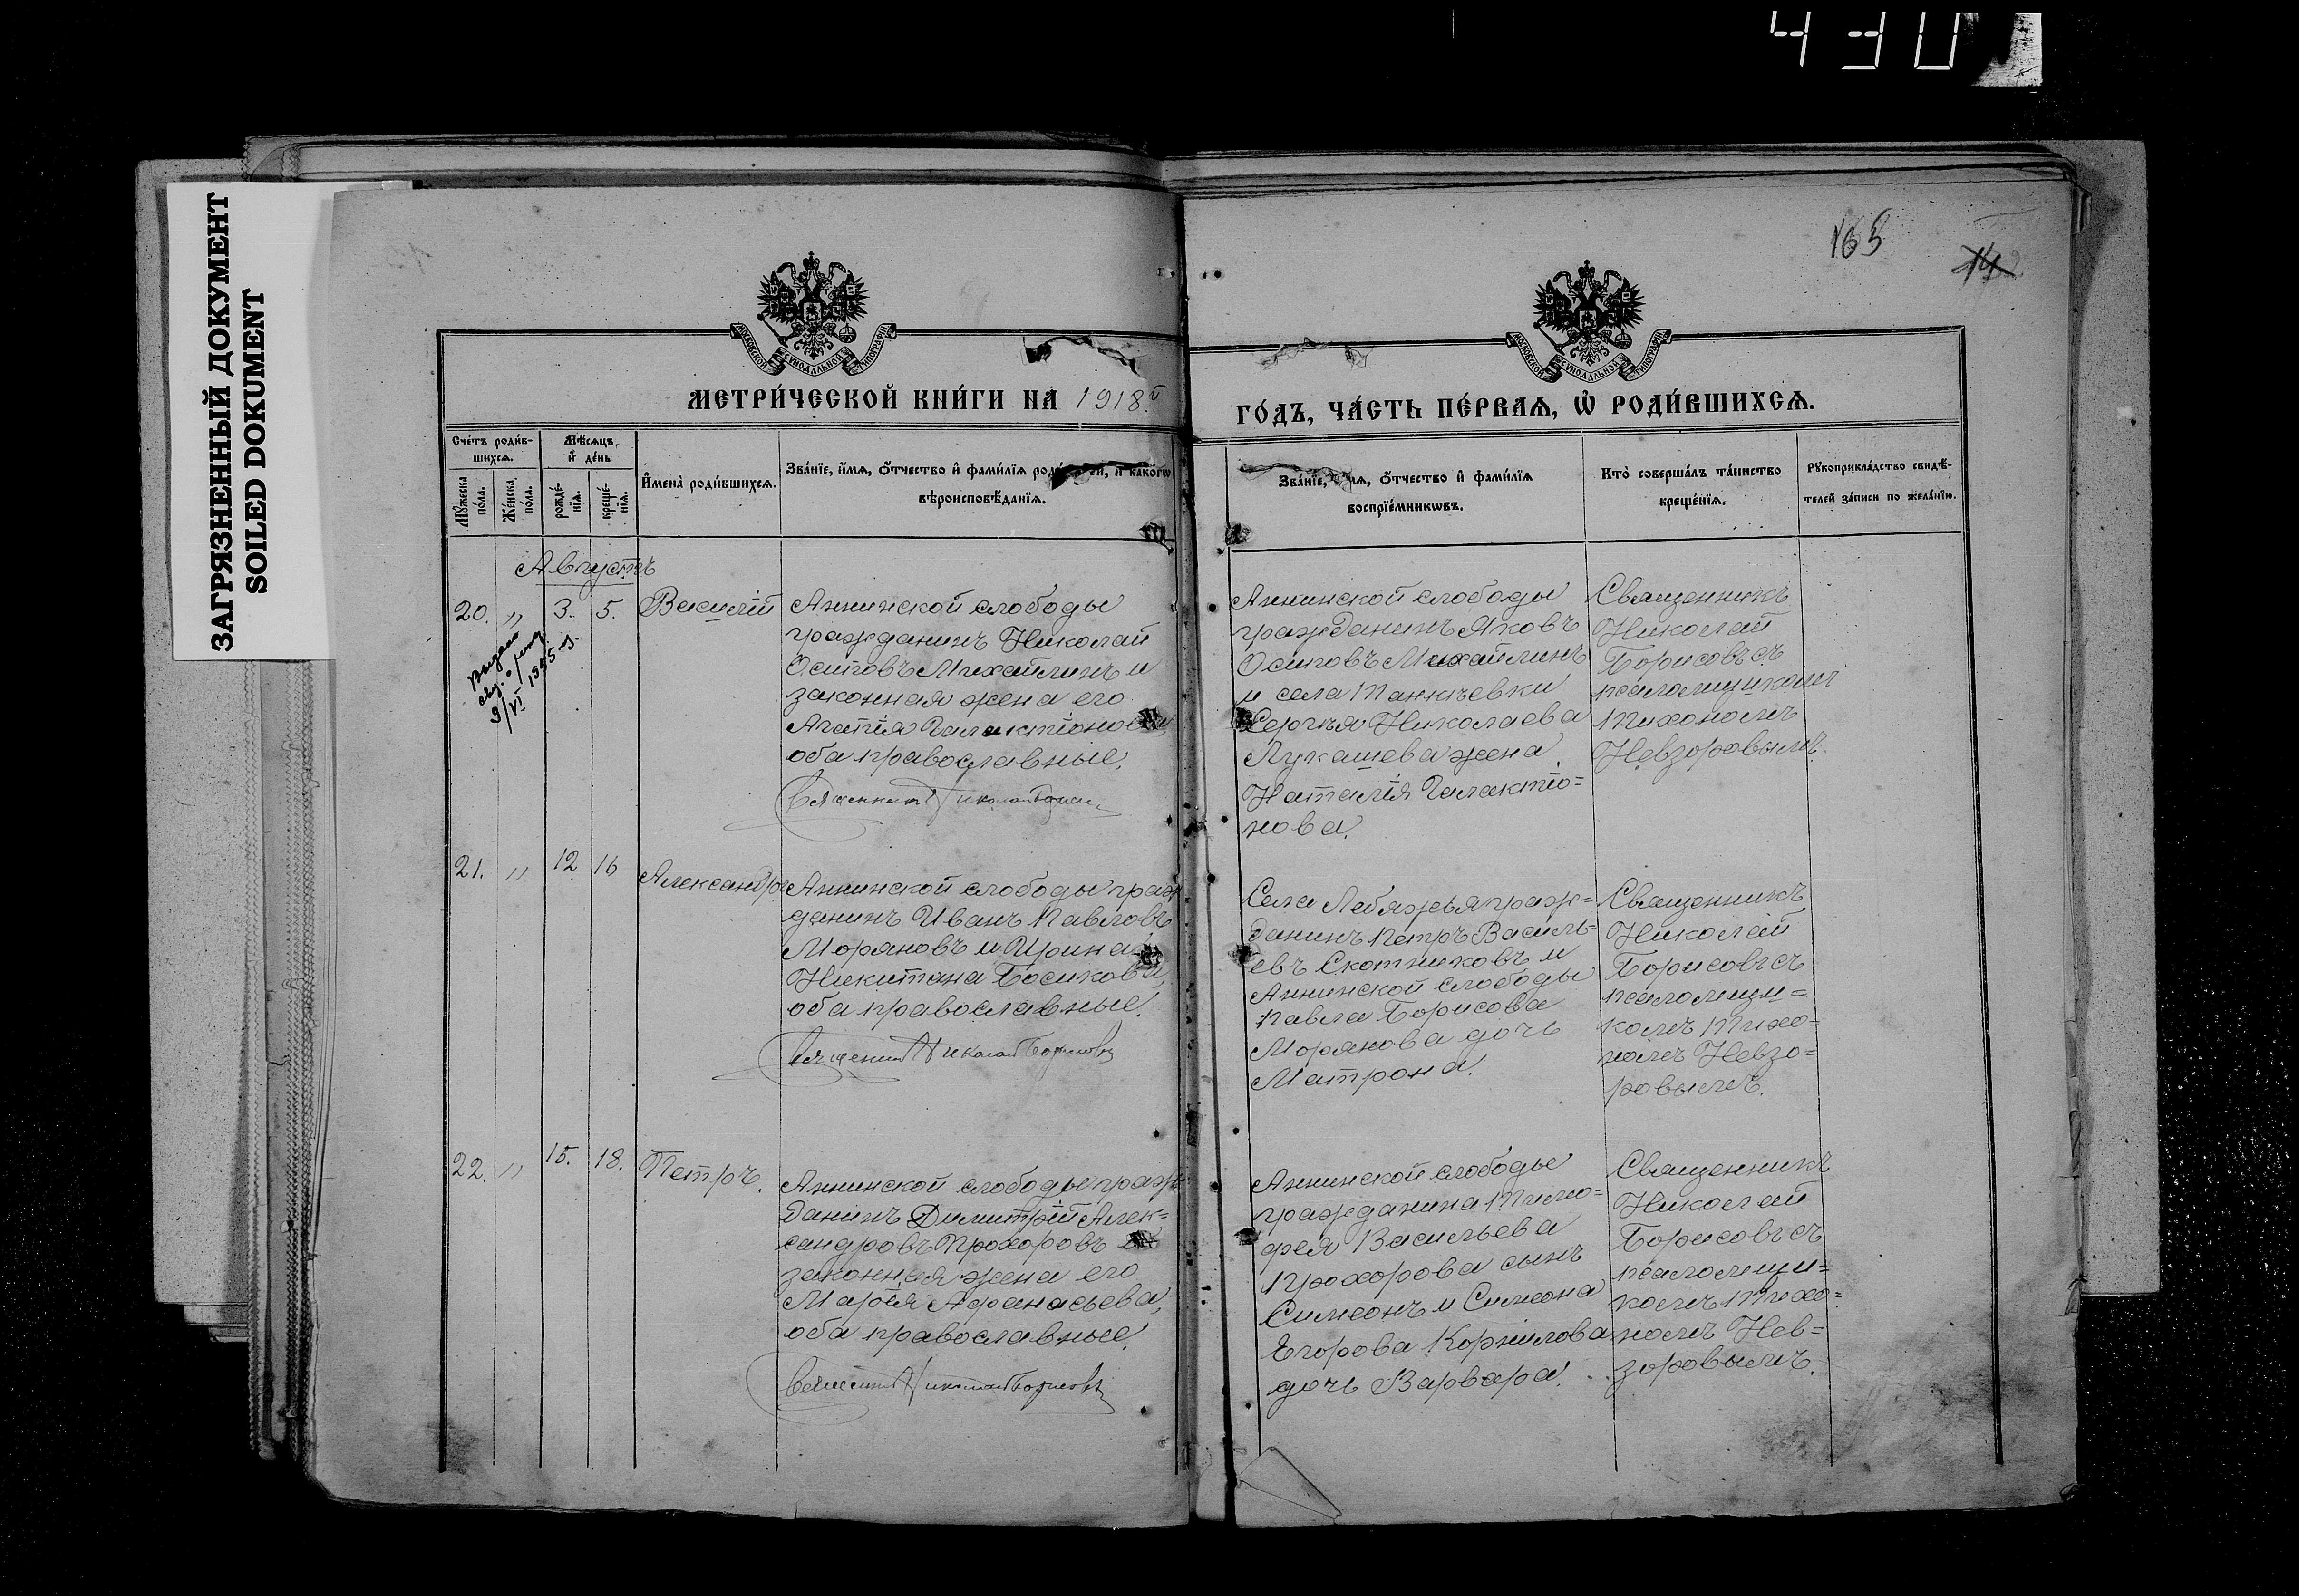 430
ЗАГРЯЗНЕННЫЙ ДОКУМЕНТ
SOILED DOKUMENT
163
14
МОСКОВСКОЙ СѴНОДАЛЬНОЙ ТИПОГРАФІИ
МОСКОВСКОЙ СѴНОДАЛЬНОЙ ТИПОГРАФІИ
МЕТРИ́ЧЕСКОЙ КНИ́ГИ НА 1918й
ГО́ДЪ, ЧА́СТЬ ПЕ́РВАѦ, Ѡ҆ РОДИ́ВШИХСѦ.
Сче́тъ роди́в-
шихсѧ.
Мѣ́сѧцъ
и҆ де́нь
Мꙋ́жеска
по́ла.
Же́нска
по́ла.
рожде́-
нїѧ.
креще́-
нїѧ.
И҆мена̀ роди́вшихсѧ.
Зва́нїе, и҆́мѧ, ѻ҆́тчество и҆ фами́лїѧ и҆ како́гѡ
вѣроисповѣ́данїѧ.
Зва́нїе, ѻ҆́тчество и҆ фами́лїѧ
воспрїе́мникѡвъ.
Кто̀ соверша́лъ та́инство
креще́нїѧ.
Рꙋкоприкла́дство свидѣ́-
телей за́писи по жела́нїю.
Августъ
20. " 3. 5. Василій
Аннинской слободы
гражданинъ Николай
Осиповъ Михайлинъ и
законная жена его
Агапія Галактіонова
оба православные.
Священникъ Николай Борисовъ
Выдано
9/VI 1955 г.
Аннинской слободы
гражданинъ Яковъ
Осиповъ Михайлинъ
и села Танкѣевки
Сергѣя Николаева
Лукашева жена
Наталія Галактіо=
нова.
Священникъ
Николай
Борисовъ съ
псаломщикомъ
Тихономъ
Невзоровымъ.
21. " 12 16 Александръ
Аннинской слободы граж
данинъ Иванъ Павловъ
Моряновъ и Ирина
Никитина Босикова,
оба православные.
Священникъ Николай Борисовъ
Села Лебяжья граж=
данинъ Петръ Василь=
евъ Скотниковъ и
Аннинской слободы
Павла Борисова
Морянова дочь
Матрона.
Священникъ
Николай
Борисовъ съ
псаломщи=
комъ Тихо=
номъ Невзо=
ровымъ.
22. " 15. 18. Петръ.
Аннинской слободы граж
данинъ Димитрій Алек=
сандровъ Прохоровъ
законная жена его
Марія Афанасьева,
оба православные.
Священникъ Николай Борисовъ
Аннинской слободы
гражданина Тимо=
фея Васильева
Прохорова сынъ
Симеонъ и Симеона
Егорова Корнилова
дочь Варвара.
Священникъ
Николай
Борисовъ съ
псаломщи=
комъ Тихо=
номъ Нев=
зоровымъ.